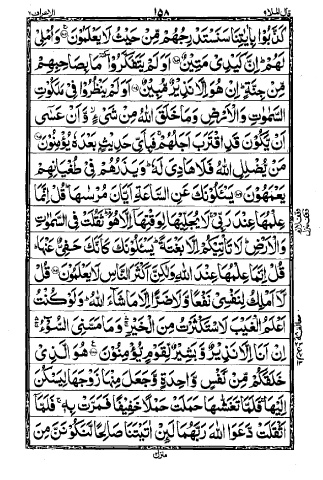 قال الملا ۹ ۱۵۸ الاعراف ۷
كَذَّبُوْا بِاٰيٰتِنَا سَنَسْتَدْرِجُهُمْ مِّنْ حَيْثُ لَا يَعْلَمُوْنَ وَاُمْلِىْ
لَهُمْ اِنَّ كَيْدِىْ مَتِيْنٌ اَوَلَمْ يَتَفَكَّرُوْا مَا بِصَاحِبِهِمْ
مِّنْ جِنَّةٍ اِنْ هُوَ اِلَّا نَذِيْرٌ مُّبِيْنٌ اَوَلَمْ يَنْظُرُوْا فِىْ مَلَكُوْتِ
السَّمٰوٰتِ وَالْاَرْضِ وَمَا خَلَقَ اللّٰهُ مِنْ شَىْءٍ وَّاَنْ عَسٰٓى
اَنْ يَّكُوْنَ قَدِ اقْتَرَبَ اَجَلُهُمْ فَبِاَىِّ حَدِيْثٍ بَعْدَهٗ يُؤْمِنُوْنَ
مَنْ يُّضْلِلِ اللّٰهُ فَلَا هَادِىَ لَهٗ وَيَذَرُهُمْ فِىْ طُغْيَانِهِمْ
يَعْمَهُوْنَ يَسْئَلُوْنَكَ عَنِ السَّاعَةِ اَيَّانَ مُرْسٰهَا قُلْ اِنَّمَا
عِلْمُهَا عِنْدَ رَبِّىْ لَا يُجَلِّيْهَا لِوَقْتِهَا اِلَّا هُوَ ثَقُلَتْ فِى السَّمٰوٰتِ
وَالْاَرْضِ لَا تَاْتِيْكُمْ اِلَّا بَغْتَةً يَسْئَلُوْنَكَ كَاَنَّكَ حَفِىٌّ عَنْهَا
قُلْ اِنَّمَا عِلْمُهَا عِنْدَ اللّٰهِ وَلٰكِنَّ اَكْثَرَ النَّاسِ لَا يَعْلَمُوْنَ قُلْ
لَّا اَمْلِكُ لِنَفْسِىْ نَفْعًا وَّلَا ضَرًّا اِلَّا مَا شَآءَ اللّٰهُ وَلَوْ كُنْتُ
اَعْلَمُ الْغَيْبَ لَاسْتَكْثَرْتُ مِنَ الْخَيْرِ وَمَا مَسَّنِىَ السُّوْٓءُ
اِنْ اَنَا اِلَّا نَذِيْرٌ وَّبَشِيْرٌ لِّقَوْمٍ يُّؤْمِنُوْنَ هُوَ الَّذِىْ
خَلَقَكُمْ مِّنْ نَّفْسٍ وَّاحِدَةٍ وَّجَعَلَ مِنْهَا زَوْجَهَا لِيَسْكُنَ
اِلَيْهَا فَلَمَّا تَغَشّٰهَا حَمَلَتْ حَمْلًا خَفِيْفًا فَمَرَّتْ بِهٖ فَلَمَّا
اَثْقَلَتْ دَّعَوَا اللّٰهَ رَبَّهُمَا لَئِنْ اٰتَيْتَنَا صَالِحًا لَّنَكُوْنَنَّ مِنَ
منزل